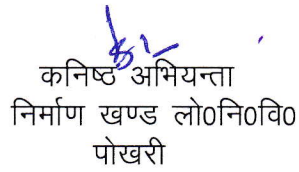 कनिष्ठ अभियन्ता
निर्माण खण्ड लो0नि0वि0
पोखरी